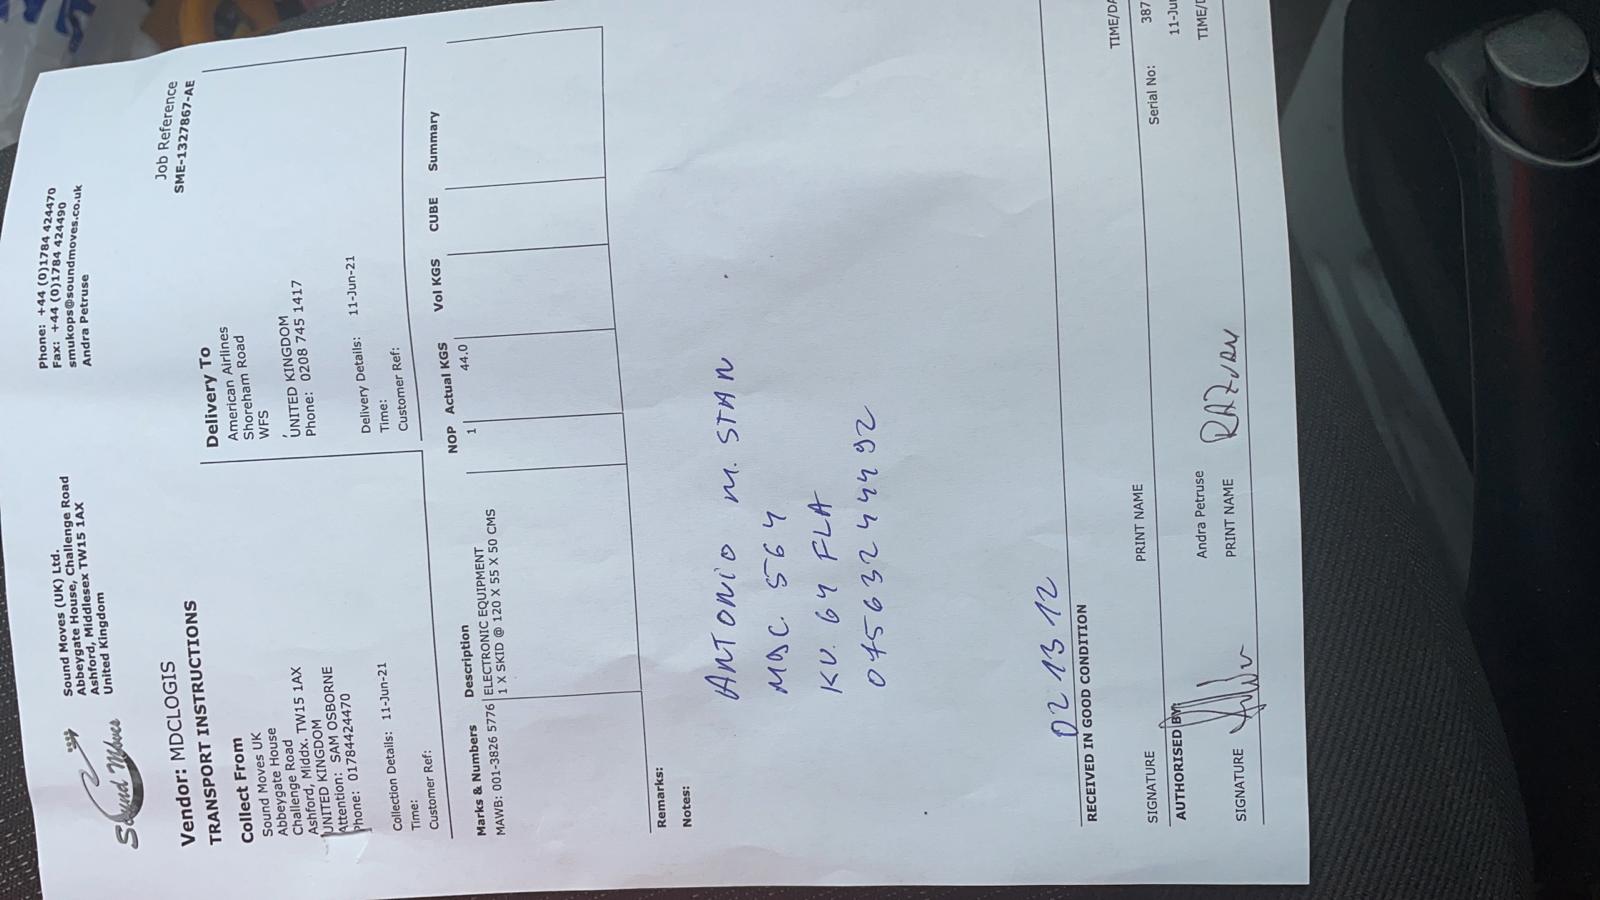 Sound Moves
Sound Moves (UK) Ltd.
Abbeygate House, Challenge Road
Ashford, Middlesex TW15 1AX
United Kingdom
Phone: +44 (0)1784 424470
Fax: +44 (0)1784 424490
smukops@soundmoves.co.uk
Andra Petruse
Vendor: MDCLOGIS
TRANSPORT INSTRUCTIONS
Job Reference
SME-1327867-AE
Collect From
Sound Moves UK
Abbeygate House
Challenge Road
Ashford, Middx. TW15 1AX
UNITED KINGDOM
Attention: SAM OSBORNE
Phone: 01784424470
Collection Details: 11-Jun-21
Time:
Customer Ref:
Delivery To
American Airlines
Shoreham Road
WFS
,
UNITED KINGDOM
Phone: 0208 745 1417
Delivery Details: 11-Jun-21
Time:
Customer Ref:
Marks & Numbers Description NOP Actual KGS Vol KGS CUBE Summary
MAWB: 001-3826 5776 ELECTRONIC EQUIPMENT 1 44.0
1 X SKID @ 120 X 55 X 50 CMS
Remarks:
Notes:
ANTONIO M. STAN
MDC 564
KV. 64 FLA
07563244492
02 13 12
RECEIVED IN GOOD CONDITION
SIGNATURE PRINT NAME TIME/DA
AUTHORISED BY: Serial No: 387
Andra Petruse 11-Ju
SIGNATURE PRINT NAME RAZVAN TIME/D